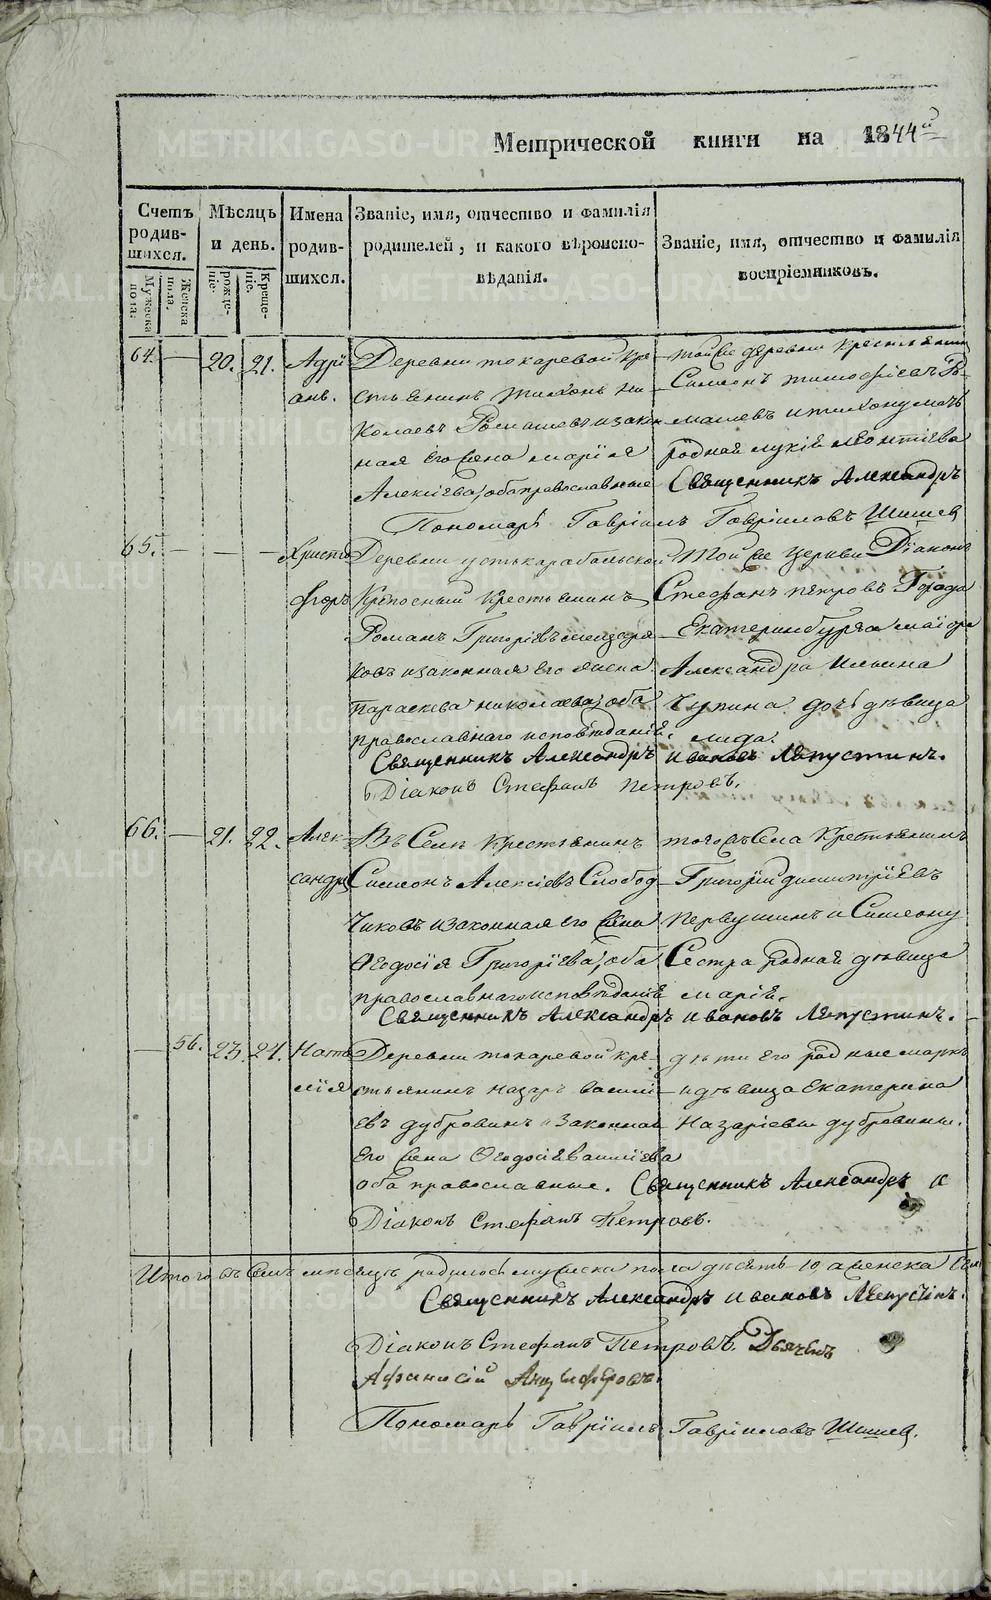 Метрической книги на 1844й
Счетъ родившихся.
Мужеска пола:
Женска пола,
Мѣсяцъ и день.
рожденіе.
Крещеніе.
Имена родившихся.
Званіе, имя, отчество и фамилія родителей, и какого вѣроисповѣданія.
Званіе, имя, отчество и фамилія воспріемниковъ.
64. — 20. 21. Адріанъ.
Деревни токаревой кре-
стьянинъ Тихонъ Ни-
колаевъ Ромашевъ и закон
ная его жена Марія
Алексіева, оба православные
той же деревни крестьянинъ
Симеонъ Тимофіевъ Ро-
машевъ и тихону мать
родная Лукія Леонтіева
Священникъ Александръ
Пономарь Гавріилъ Гавріиловъ Шишев
65. — — — Христофоръ
Деревни устькарабольской
Крепосный крестьянинъ
Романъ Григоріевъ
ковъ и законная его жена
Параскева николаева, оба
православнаго исповѣданія.
Той же церкви Діаконъ
Стефанъ Петровъ Города
Екатеринбурга маіора
Александра Ильина
Чупина дочь дѣвица
лида.
Священникъ Александръ Ивановъ Ляпустинъ.
Діаконъ Стефанъ Петровъ.
66. — 21. 22. Александръ
Въ Селѣ Крестьянинъ
Симеонъ Алексіевъ Слобод-
чиковъ и законная его жена
Ѳеодосія Григоріева, оба
православнаго исповѣданія
тогожъ Села Крестьянинъ
Григорій димитріевъ
Первушинъ и Симеону
Сестра родная дѣвица
марія.
Священникъ Александръ Ивановъ Ляпустинъ.
— 56. 23. 24. Наталія
Деревни токаревой кре-
стьянинъ назаръ васили-
евъ дубровинъ и законная
его жена Ѳеодосія василіева
оба православные.
дѣти его родные маркъ
и дѣвица екатерина
Назаріевы дубровины.
Священникъ Александръ И
Діаконъ Стефанъ Петровъ.
Итого въ семъ мѣсяцѣ родилось мужеска пола десять 10 а женска
Священникъ Александръ Ивановъ Ляпустинъ.
Діаконъ Стефанъ Петровъ. Дьячекъ
Афанасій Анциферовъ.
Пономарь Гавріилъ Гавріиловъ Шишев.
METRIKI.GASO-URAL.RU